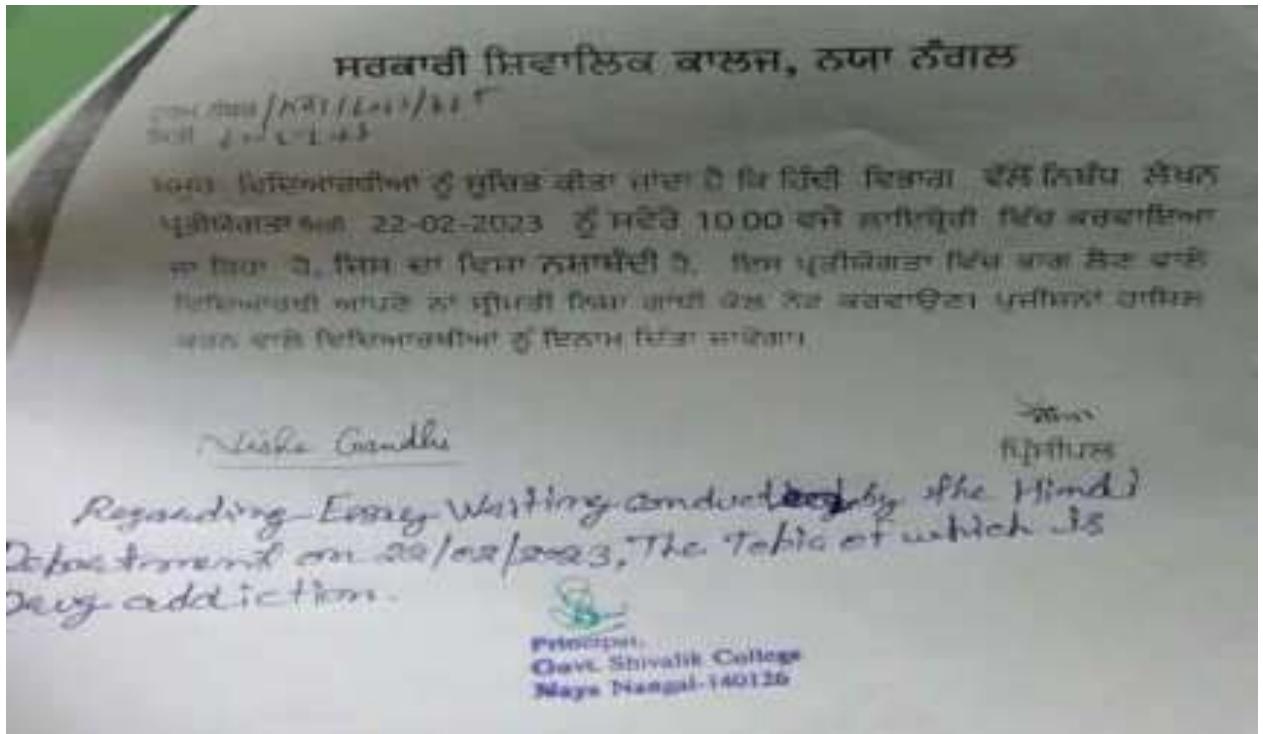 ਸਰਕਾਰੀ ਸ਼ਿਵਾਲਿਕ ਕਾਲਜ, ਨਯਾ ਨੰਗਲ
ਵਿਦਿਆਰਥੀਆਂ ਨੂੰ ਸੂਚਿਤ ਕੀਤਾ ਜਾਂਦਾ ਹੈ ਕਿ ਹਿੰਦੀ ਵਿਭਾਗ ਵੱਲੋਂ ਨਿਬੰਧ ਲੇਖਨ
ਪ੍ਰਤੀਯੋਗਤਾ 22-02-2023 ਨੂੰ ਸਵੇਰੇ 10.00 ਵਜੇ ਲਾਇਬ੍ਰੇਰੀ ਵਿੱਚ ਕਰਵਾਇਆ
ਜਾ ਰਿਹਾ ਹੈ, ਜਿਸ ਦਾ ਵਿਸ਼ਾ ਨਸ਼ਾਬੰਦੀ ਹੈ. ਇਸ ਪ੍ਰਤੀਯੋਗਤਾ ਵਿੱਚ ਭਾਗ ਲੈਣ ਵਾਲੇ
ਵਿਦਿਆਰਥੀ ਆਪਣੇ ਨਾਂ ਸ੍ਰੀਮਤੀ ਨਿਸ਼ਾ ਗਾਂਧੀ ਕੋਲ ਨੋਟ ਕਰਵਾਉਣ। ਪੁਜੀਸ਼ਨਾਂ ਹਾਸਿਲ
ਕਰਨ ਵਾਲੇ ਵਿਦਿਆਰਥੀਆਂ ਨੂੰ ਇਨਾਮ ਦਿੱਤਾ ਜਾਵੇਗਾ।
Nisha Gandhi
ਪ੍ਰਿੰਸੀਪਲ
Regarding Essay Writing conducted by the Hindi
Department on 22/02/2023, The Topic of which is
Drug addiction.
Principal,
Govt. Shivalik College
Naya Nangal-140126